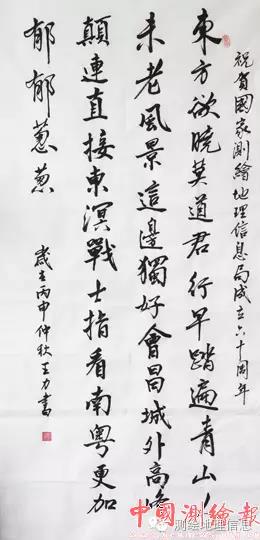 祝賀國家測繪地理信息局成立六十周年
東方欲曉莫道君行早踏遍青山人
未老風景這邊獨好會昌城外高峰
顛連直接東溟戰士指看南粤更加
郁郁蔥蔥
歲在丙申仲秋王力書
中國測繪報
测绘地理信息